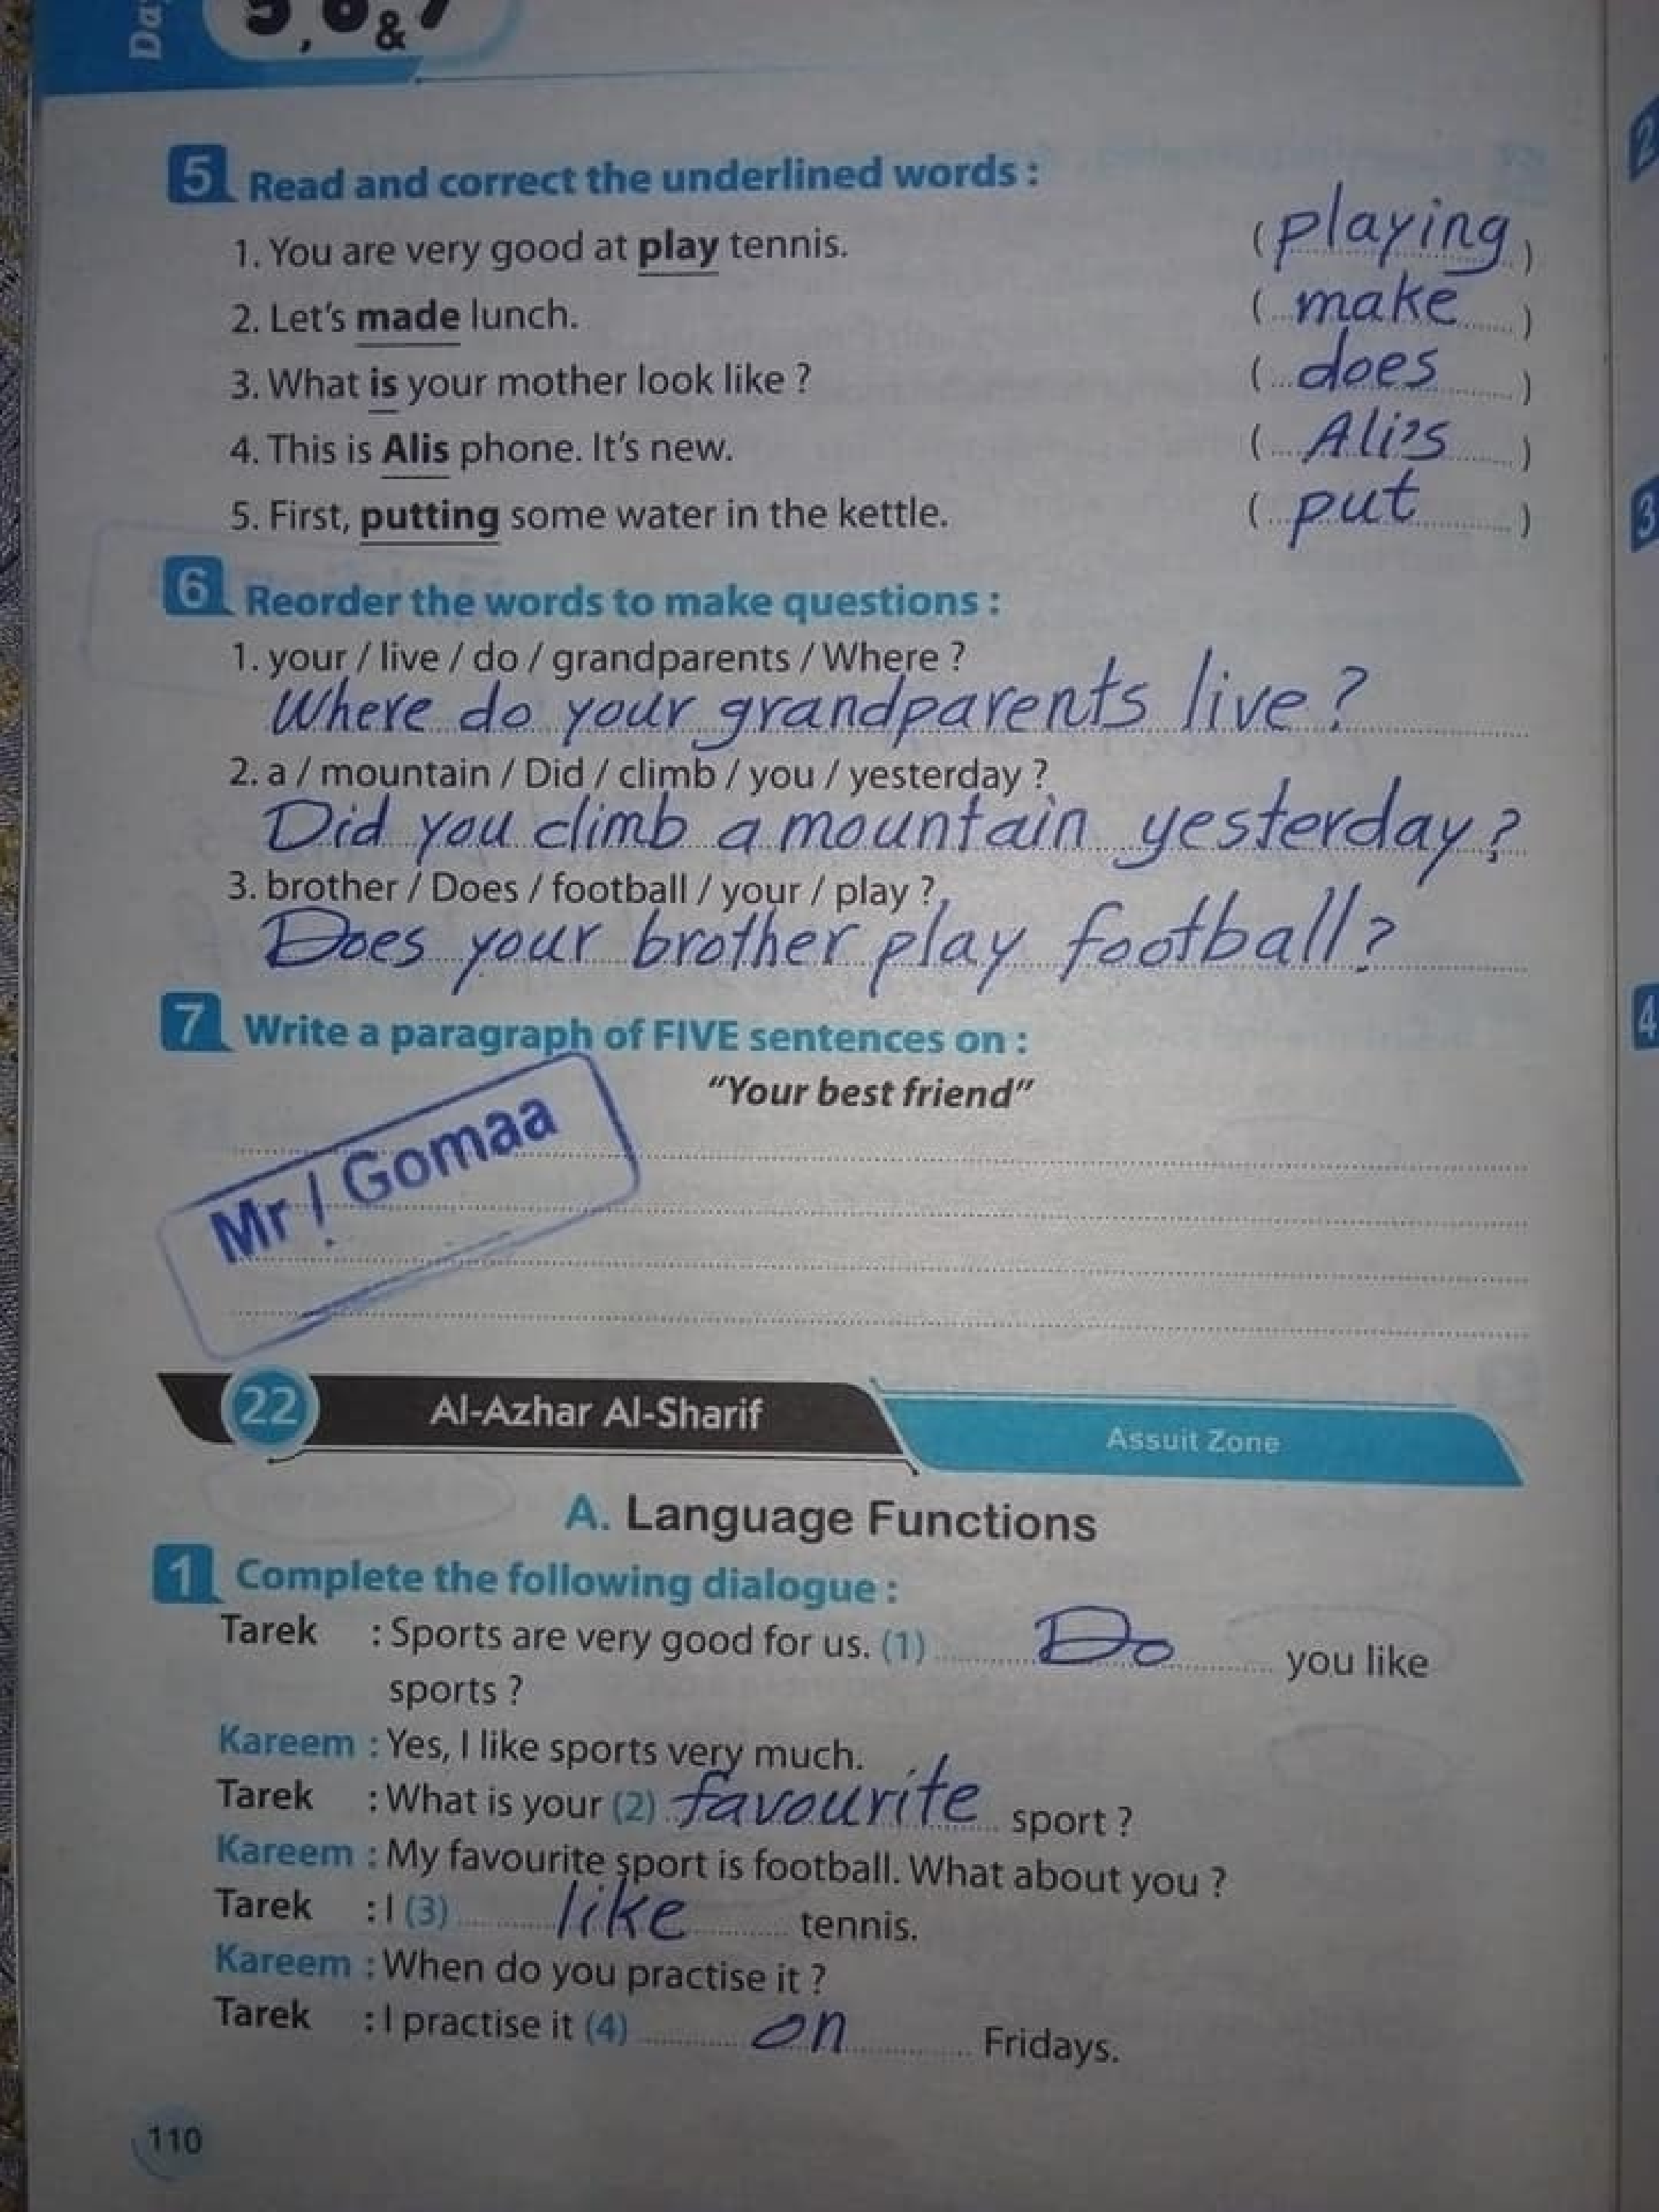 Day
5, 6 & 7
5 Read and correct the underlined words :
1. You are very good at play tennis. ( playing )
2. Let's made lunch. ( make )
3. What is your mother look like ? ( does )
4. This is Alis phone. It's new. ( Ali's )
5. First, putting some water in the kettle. ( put )
6 Reorder the words to make questions :
1. your / live / do / grandparents / Where ?
Where do your grandparents live ?
2. a / mountain / Did / climb / you / yesterday ?
Did you climb a mountain yesterday ?
3. brother / Does / football / your / play ?
Does your brother play football ?
7 Write a paragraph of FIVE sentences on :
"Your best friend"
Mr / Gomaa
22 Al-Azhar Al-Sharif Assuit Zone
A. Language Functions
1 Complete the following dialogue :
Tarek : Sports are very good for us. (1) Do you like
sports ?
Kareem : Yes, I like sports very much.
Tarek : What is your (2) favourite sport ?
Kareem : My favourite sport is football. What about you ?
Tarek : I (3) like tennis.
Kareem : When do you practise it ?
Tarek : I practise it (4) on Fridays.
110
2
3
4